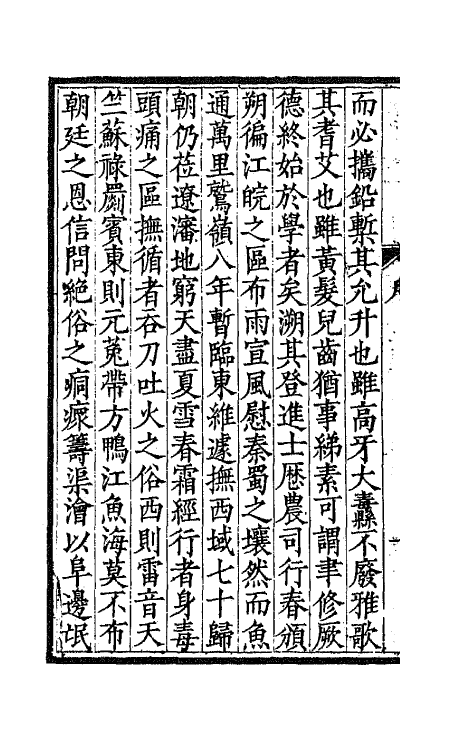 而必攜鉛槧其允升也雖高牙大纛不廢雅歌
其耆艾也雖黃髮兒齒猶事綈素可謂聿修厥
德終始於學者矣溯其登進士歷農司行春頒
朔徧江皖之區布雨宣風慰秦蜀之壤然而魚
通萬里鷲嶺八年暫臨東維遽撫西域七十歸
朝仍莅遼瀋地窮天盡夏雪春霜經行者身毒
頭痛之區撫循者吞刀吐火之俗西則雷音天
竺蘇祿罽賓東則元菟帶方鴨江魚海莫不布
朝廷之恩信問絕俗之痌瘝籌渠澮以阜邊氓